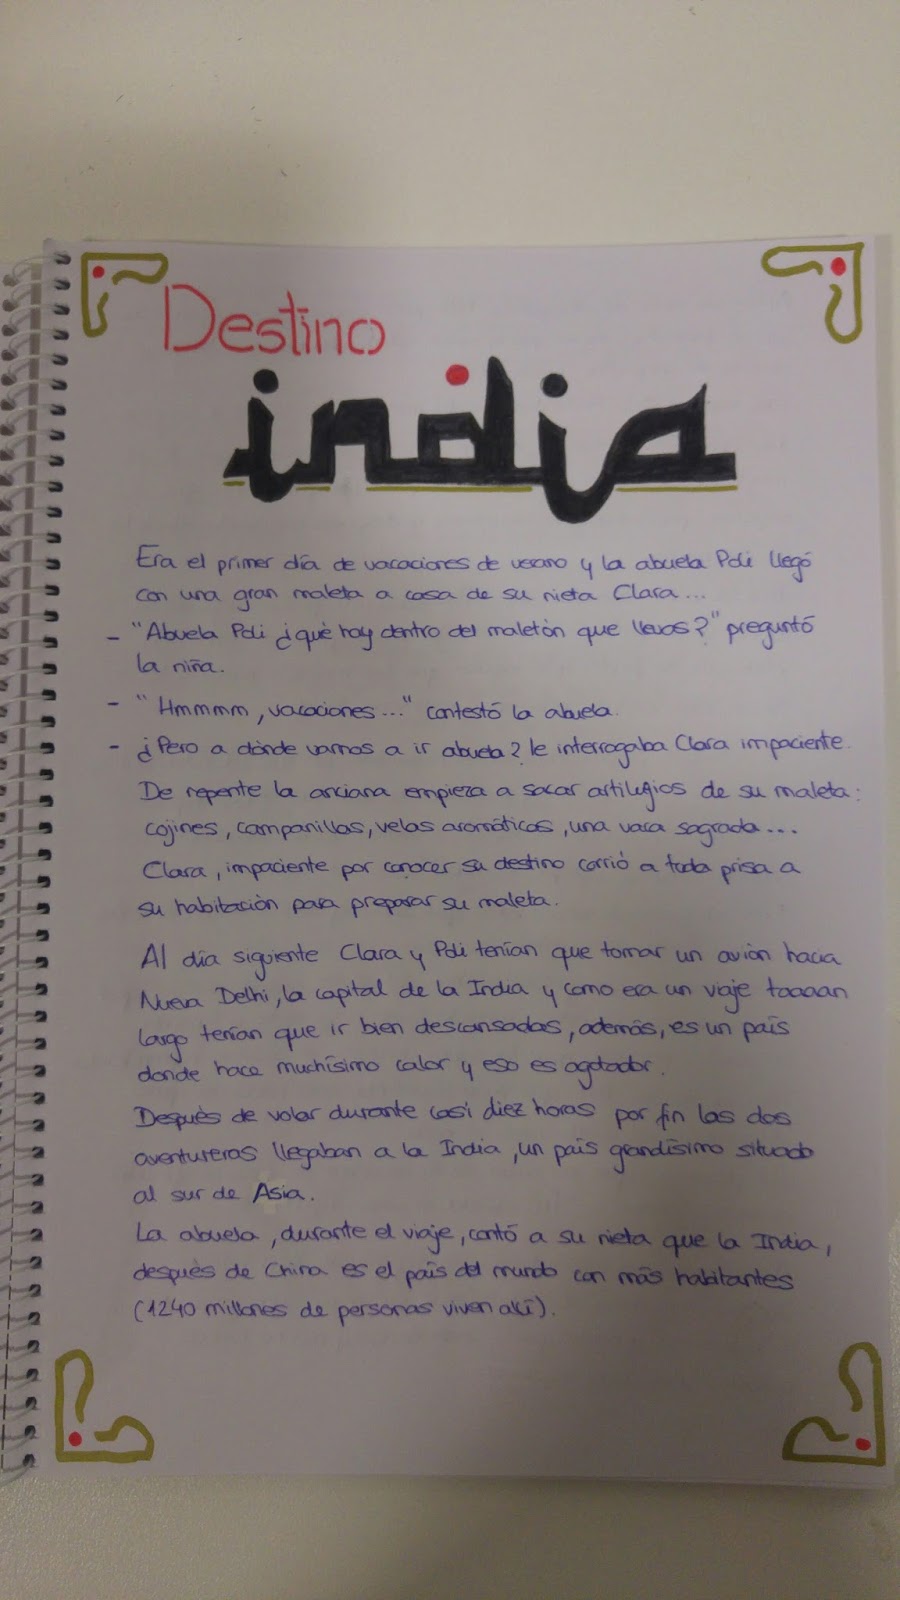 Destino
india
Era el primer día de vacaciones de verano y la abuela Poli llegó
con una gran maleta a casa de su nieta Clara...
- "Abuela Poli ¿qué hay dentro del maletón que llevas?" preguntó
la niña.
- "Hmmmm, vacaciones..." contestó la abuela.
- ¿Pero a dónde vamos a ir abuela? le interrogaba Clara impaciente.
De repente la anciana empieza a sacar artilugios de su maleta:
cojines, campanillas, velas aromáticas, una vaca sagrada...
Clara, impaciente por conocer su destino corrió a toda prisa a
su habitación para preparar su maleta.
Al día siguiente Clara y Poli tenían que tomar un avión hacia
Nueva Delhi, la capital de la India y como era un viaje taaaan
largo tenían que ir bien descansadas, además, es un país
donde hace muchísimo calor y eso es agotador.
Después de volar durante casi diez horas por fin las dos
aventureras llegaban a la India, un país grandísimo situado
al sur de Asia.
La abuela, durante el viaje, contó a su nieta que la India,
después de China es el país del mundo con más habitantes
(1240 millones de personas viven allí).